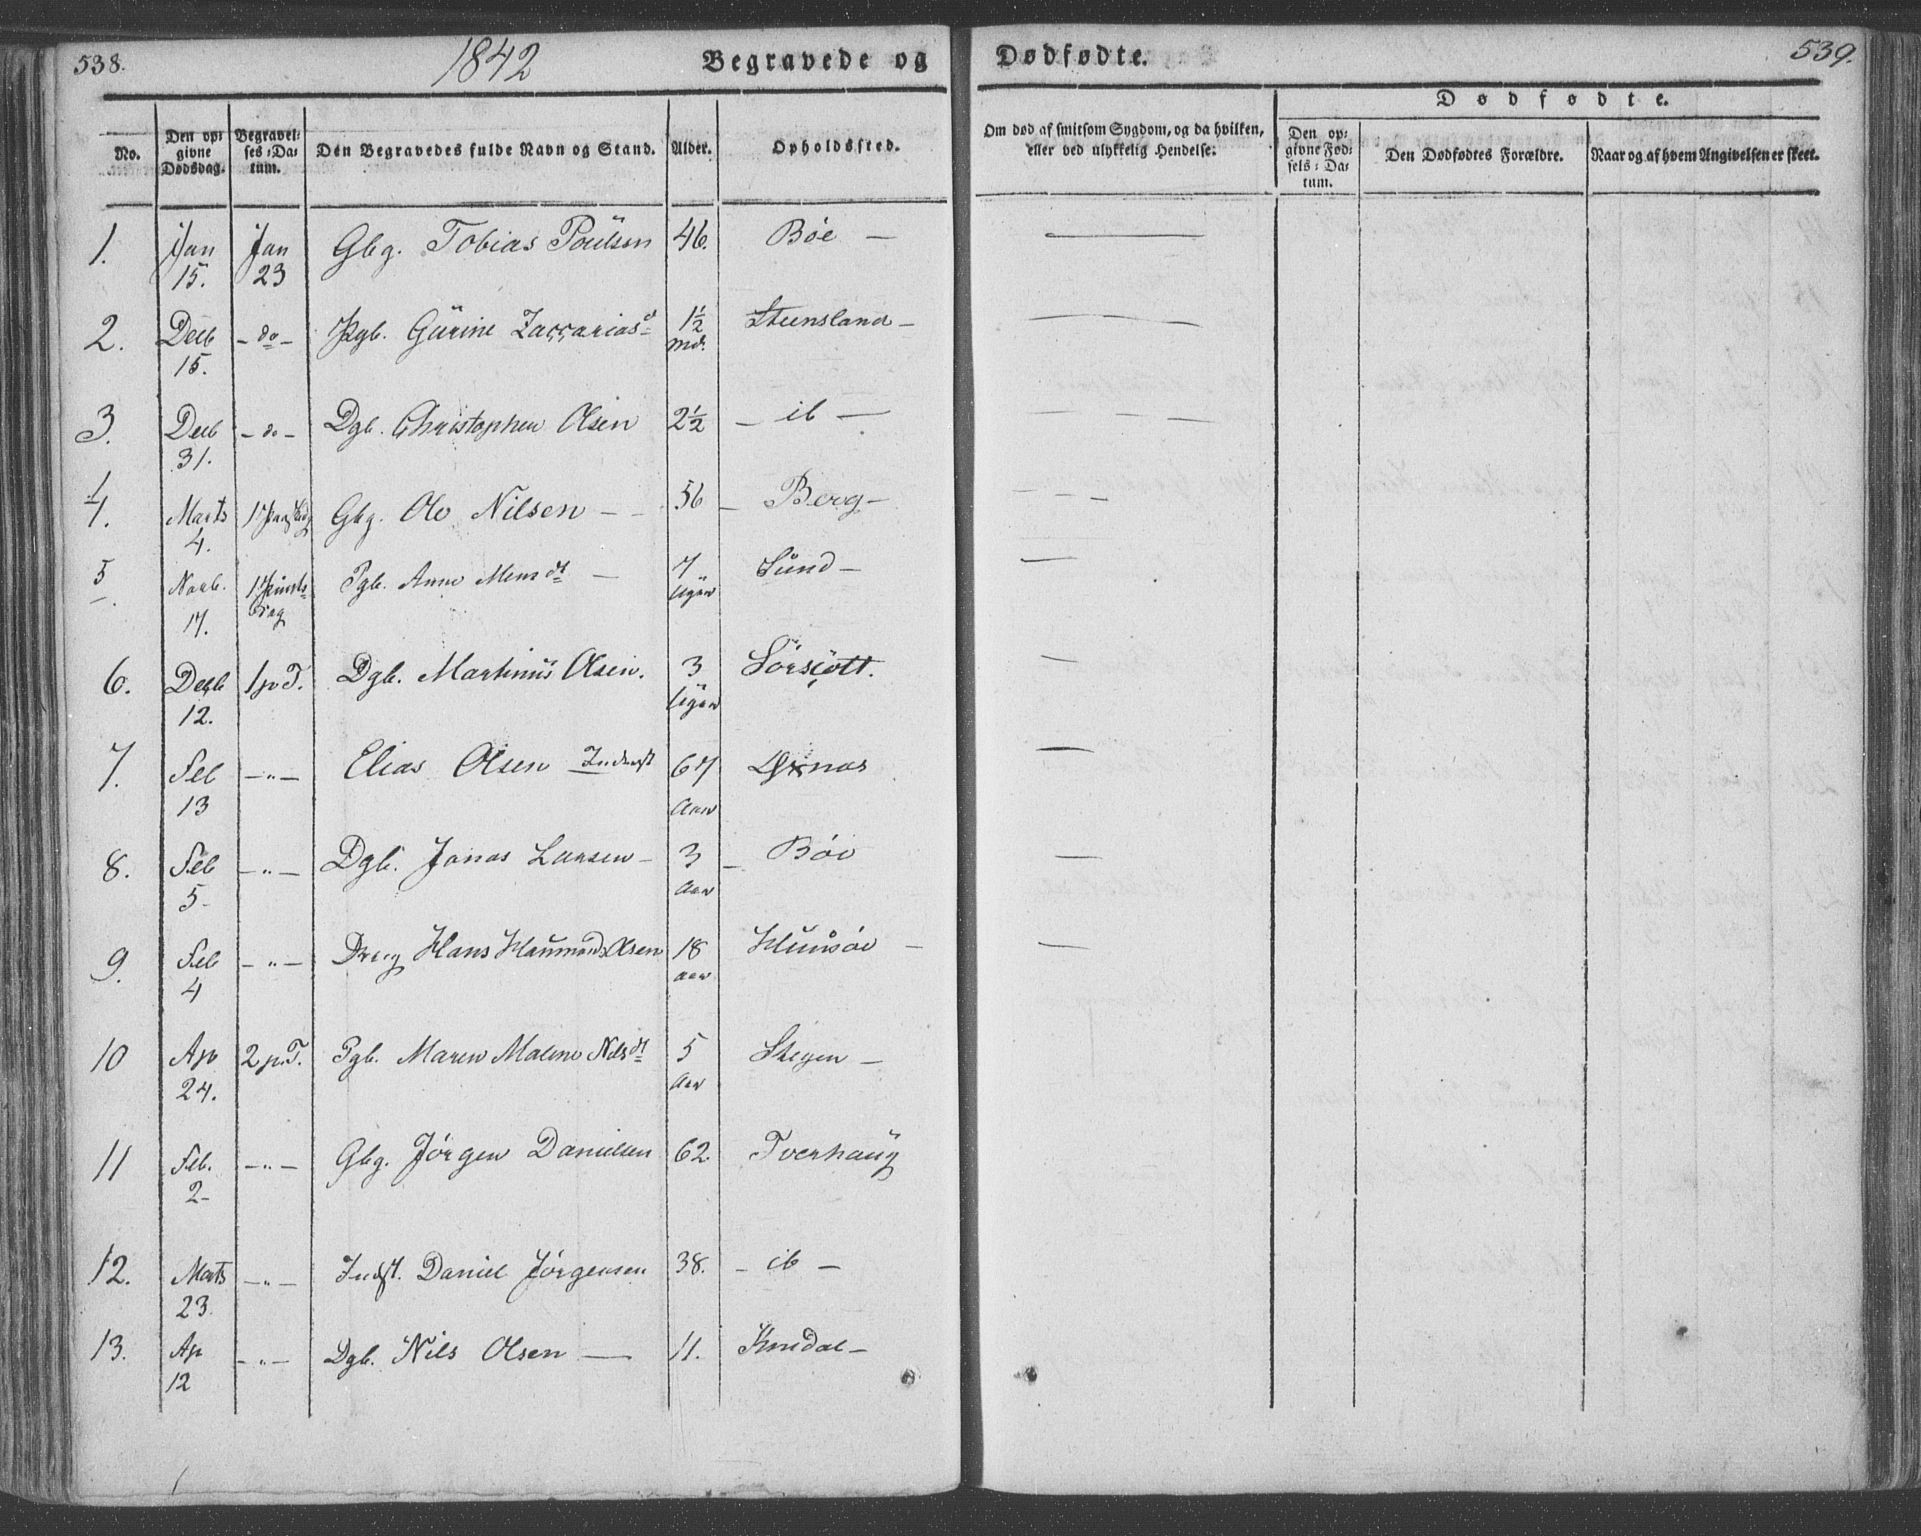 538. 1842 Begravede og Dødfødte. 539.
Dødfødte.
No. Den opgivne Dødsdag. Begravelses-Datum. Den Begravedes fulde Navn og Stand. Alder. Opholdssted. Om død af smitsom Sygdom, og da hvilken, eller ved ulykkelig Hendelse. Den opgivne Fødsels-Datum. Den Dødfødtes Forældre. Naar og af hvem Angivelsen er skeet.
1. Jan 15. Jan 23 Gbg. Tobias Poülsen 46. Bøe —
2. Decb 15. - do - Pgb. Gürine Zaccariasd 1½ Md. Steensland -
3. Decb 31. - do - Dgb. Christopher Olsen 2½ - ib -
4. Marts 4. Gbg. Ole Nilsen - 56 - Berg -
5 Novb. 17. Pgb. Anne dt - 7 Uger Sünd -
6. Decb 12. 1 p. T. Dgb. Martinüs Olsen. 3 Uger
7. Feb 13 - " - Elias Olsen Inderst 67 Aar
8. Feb 5 - " - Dgb. Jonas Larsen - 3 Aar - Bøe
9. Feb 4 - " - Dreng Hans Hammond Olsen 18 aar
10 Ap 24. 2 p. T. Pgb. Maren Malene Nilsdt 5 Aar Stegen -
11 Feb. 2 - " - Gbg. Jørgen Danielsen 62 Tverhaüg
12. Marts 23. - " - Indst. Daniel Jørgensen 38. - ib -
13. Ap 12 - " - Dgb. Nils Olsen — 11.